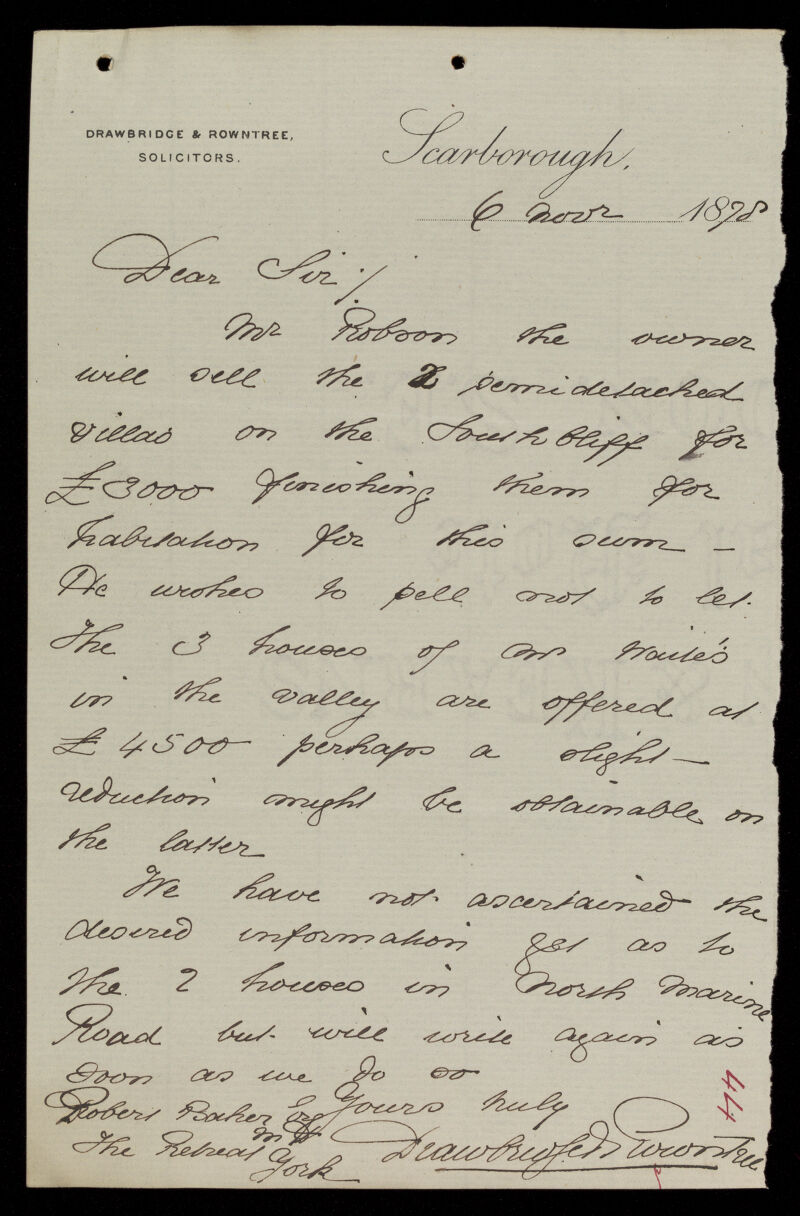 DRAWBRIDGE & ROWNTREE,
SOLICITORS.
Scarborough.
6 Novr 1878
Dear Sir/.
Mr Robson the owner
will sell the 2 semidetached
villas on the South Cliff for
£3000 finishing them for
habitation for this sum –
He wishes to sell not to let.
The 3 houses of Mr Waite's
in the valley are offered at
£4500 perhaps a slight –
reduction might be obtainable on
the latter
We have not ascertained the
desired information yet as to
the 2 houses in North Marine
Road but will write again as
soon as we do so
Yours truly
Drawbridge & Rowntree
Robert Baker Esq
M D
The Retreat
York
474